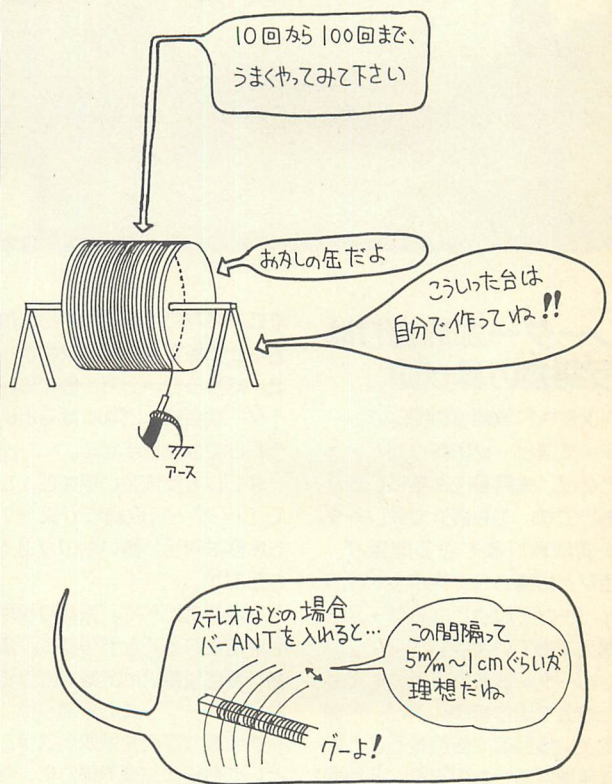 10回から100回まで、
うまくやってみて下さい
お菓子の缶だよ
こういった台は
自分で作ってね!!
アース
ステレオなどの場合
バーANTを入れると…
この間隔って
5m/m~1cmぐらいが
理想だね
グーよ!